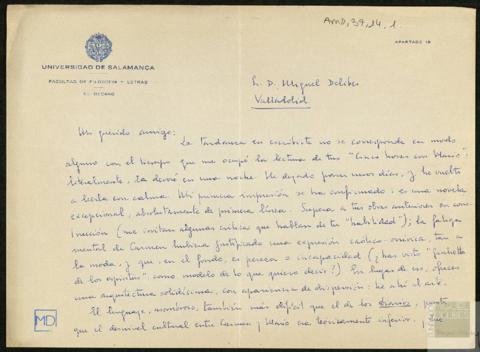 AMD, 39, 14, 1
APARTADO 18
UNIVERSIDAD DE SALAMANCA
FACULTAD DE FILOSOFIA Y LETRAS
EL DECANO
D. Miguel Delibes
Valladolid
Mi querido amigo:
La tardanza en escribirte no se corresponde en modo
alguno con el tiempo que me ocupó la lectura de tus "Cinco horas con Mario":
literalmente, la devoré en una noche. He dejado pasar unos días, y he vuelto
a leerla con calma. Mi primera impresión se ha confirmado: es una novela
excepcional, absolutamente de primera línea. Supera a tus obras anteriores en cons-
trucción (me irritan algunas críticas que hablan de tu "habilidad"); la fatiga
mental de Carmen hubiera justificado una expresión caótico-onírica, tan a
la moda, y que, en el fondo, es pereza o incapacidad (¿has visto "Giulietta
de los espíritus" como modelo de lo que quiero decir?) En lugar de eso, ofreces
una arquitectura solidísima, con apariencia de dispersión: he ahí el arte.
El lenguaje, asombroso, también más difícil que el de los Diarios, puesto
que el desnivel cultural entre Carmen y Mario era teóricamente inferior, y que
MD